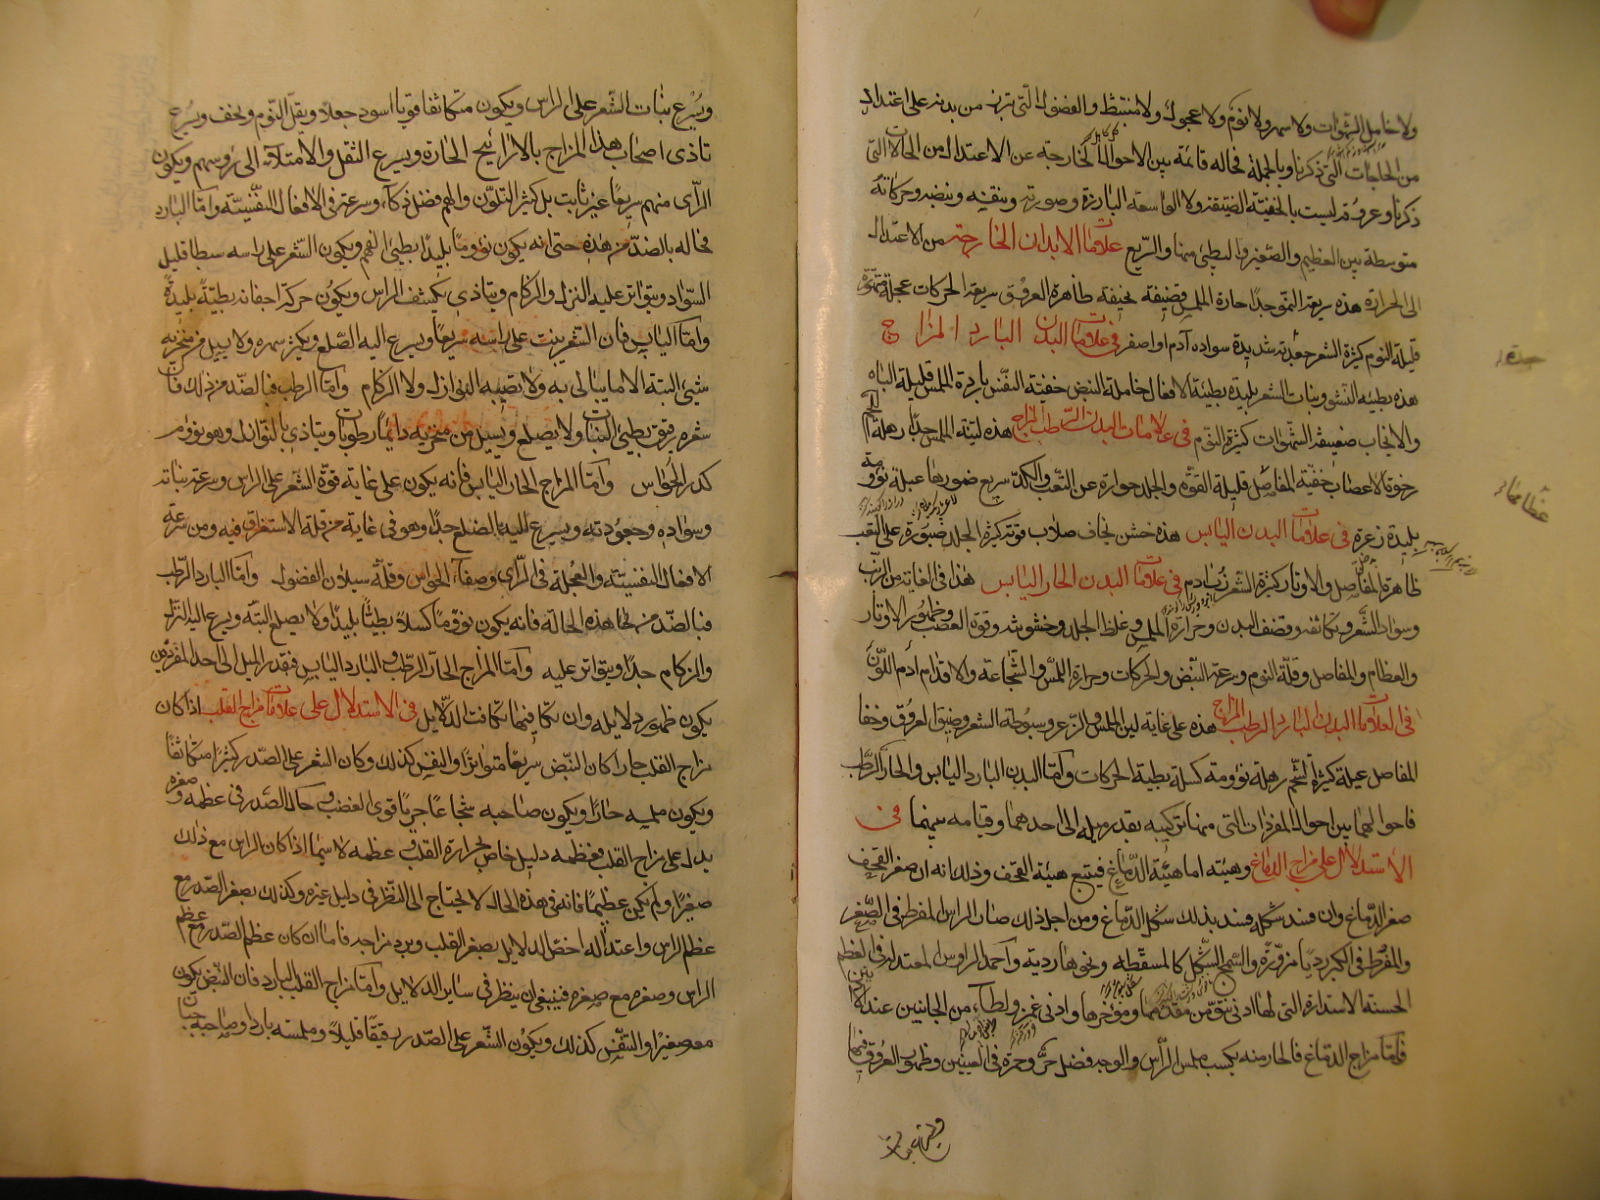 ولا خامل الشهوات ولا سهر ولا نؤم ولا عجول ولا متبشط والفضول التي تبرز من بدنه على اعتدال
من الحاجات التي ذكرنا وبالجملة فحاله قائمة بين الاحوال الخارجة عن الاعتدال من الحالات التي
ذكرنا وعروقه ليست بالخفيّة الضيّقة ولا الواسعة البارزة وصورته ونفسه ونبضه وحركاته
متوسطة بين العظيم والصّغير والبطئ منها والسّريع علامات الابدان الخارجة من الاعتدال
الى الحرارة هذه سريعة النموّ جدّا حارة الملمس قضيفة نحيفة ظاهرة العروق سريعة الحركات عجلة
قليلة النوم كثيرة الشعر جعدته شديدة سواده آدم او اصفر فى علامات البدن البارد المزاج
هذه بطيئه النشو ونبات الشعر بليدة بطيئة الافعال خاملة النبض خفيّة النفس باردة الملمس قليلة الباه
والانجاب ضعيفة الشهوات كثيرة النوم فى علامات البدن الرّطب المزاج هذه ليّنة الملمس جدّا رهلة
رخوة الاعصاب خفيّة المفاصل قليلة القوّة والجلد خوارة عن التّعب والكدّ سريع ضمورها عبلة نؤومة
بليدة زعرة فى علامات البدن اليابس هذه خشن نحاف صلاب قوته كثيرة الجلد صبورة على التعب
ظاهرة المفاصل والاوتار كثيرة الشعر أدم فى علامات البدن الحار اليابس هذا فى الغاية من الزبّ
وسواد الشعر وتكاثفه وقضف البدن وحرارة الملمس وغلظ الجلد وخشونته وقوة العصب وظهور الاوتار
والعظام والمفاصل وقلّة النوم وسرعة النبض والحركات وحرارة الملمس والشّجاعة والاقدام أدم اللّون
فى العلامات البدن البارد الرطب المزاج هذه على غاية لين الملمس والزّعر وسبوطة الشعر وضيق العروق وخفا
المفاصل عبلة كثيرة الشّحم رهلة نؤومة كسلة بطيئة الحركات وامّا البدن البارد اليابس والحارّ الرّطب
فاحوالهما بين احوال المفردات التى منها تركيبه بقدر ميله الى احدهما وقيامه بينهما فى
الاستدلال على مزاج الدّماغ وهيئته اما هيئة الدّماغ فيتبع هيئة القحف وذلك انه ان صغر القحف
صغر الدّماغ وان فسد شكله فسد بذلك شكل الدّماغ ومن اجل ذلك صار الراس المفرط فى الصّغر
والمفرط فى الكبر رديا مزوّرة والسّمج الشّكل كالمسقّطه ونحوها رديئة واحمد الرؤس المعتدل فى العظم
الحسنة الاستدارة التى لها ادنى نتوّ من مقدّمها ومؤخرها وادنى غمز ولطاء من الجانبين عند الاذنين
فامّا مزاج الدّماغ فالحار منه يكسب ملمس الرّأس والوجه فضل حرّ وحمرة فى العينين وظهور العروق فيهما
ويسرع نبات الشّعر على الراس ويكون متكاثفا قويا اسود جعدا ويقلّ النّوم ويخف ويسرع
تاذى اصحاب هذا المزاج بالاراييح الحارة ويسرع الثقل والامتلاء الى رؤسهم ويكون
الرّأى منهم سريعًا غير ثابت بل كثير التلوّن والهم فضل ذكآء وسرعة فى الافعال النفسيّة وامّا البارد
فحاله بالضدّ من هذه حتى انه يكون نؤومًا بليدًا بطيئ الفهم ويكون الشعر على راسه سبطا قليل
السّواد ويتواتر عليه النزلة والزكام ويتاذى بكشف الراس ويكون حركة اجفانه بطيئةً بليدة
وامّا اليابس فان الشعر ينبت على راسه سريعًا ويسرع اليه الصّلع ويكثر سهره ولا يسيل من منخريه
شيئ البتة الا ما يبالى به ولا يصيبه النوازل ولا الزكام وامّا الرطب فبالضدّ من ذلك فانّ
شعره رقيق بطيئ النبات ولا يصلع ويسيل من منخريه دائمًا رطوبات ويتاذى بالنوازل وهو نؤوم
كدر الحواس وامّا المزاج الحار اليابس فانه يكون على غاية قوّة الشعر على الراس وسرعة نباته
وسواده وجعودته ويسرع اليه الصلع جدًا وهو فى غاية من قلة الاستغراق فيه ومن سرعة
الافعال النفسيّة والعجلة فى الرّأى وصفاء الحواس وقلّة سيلان الفضول وامّا البارد الرّطب
فبالضدّ من هذه الحالة فانه يكون نؤومًا كسلًا بطيئًا بليدًا ولا يصلع البتّة ويسرع اليه النزلة
والزكام جدّا ويتواتر عليه وامّا المزاج الحارّ الرّطب والبارد اليابس فبقدر الميل الى احد المفردين
يكون ظهور دلايله وان تكافيا تكافت الدّلايل فى الاستدلال على علامات مزاج القلب اذا كان
مزاج القلب حارا كان النّبض سريعًا متواترًا والنفس كذلك وكان الشعر على الصّدر كثيرًا متكاثفًا
ويكون ملمسه حارًا ويكون صاحبه شجاعًا جريًا قوى الغضب وحال الصّدر فى عظمه وصغره
يدل على مزاج القلب فعظمه دليل خاص بحرارة القلب وعظمه لا سيّما اذا كان الراس مع ذلك
صغيرًا ولم يكن عظيمًا فانه فى هذه الحال لا يحتاج الى النّظر فى دليل غيره وكذلك يصغر الصّدر مع
عظم الراس واعتداله اخصّ الدلايل بصغر القلب وبرد مزاجه فاما ان كان عظم الصّدر مع عظم
الراس وصغره مع صغره فينبغى ان ينظر فى ساير الدلايل وامّا مزاج القلب البارد فان النّبض يكون
معه صغيرًا والنّفس كذلك ويكون الشّعر على الصّدر رقيقًا قليلًا وملمسه باردا وصاحبه جبانا